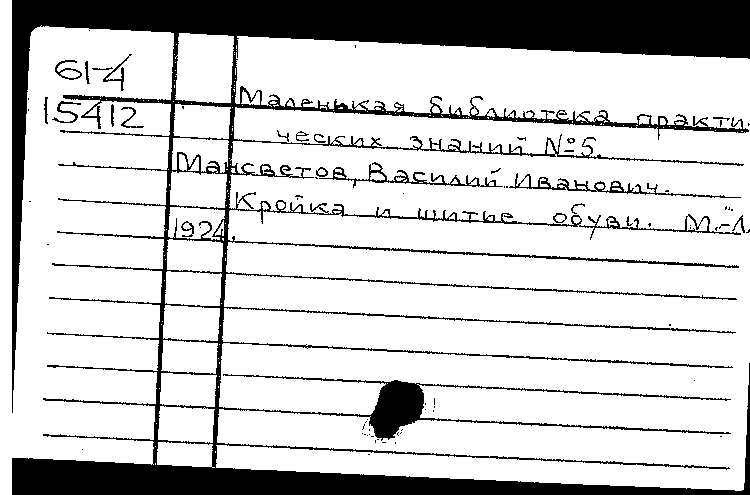 61-4
15412
Маленькая библиотека практи-
ческих знаний. №5.
Мансветов, Василий Иванович.
Кройка и шитье обуви. М.-Л.
1924.